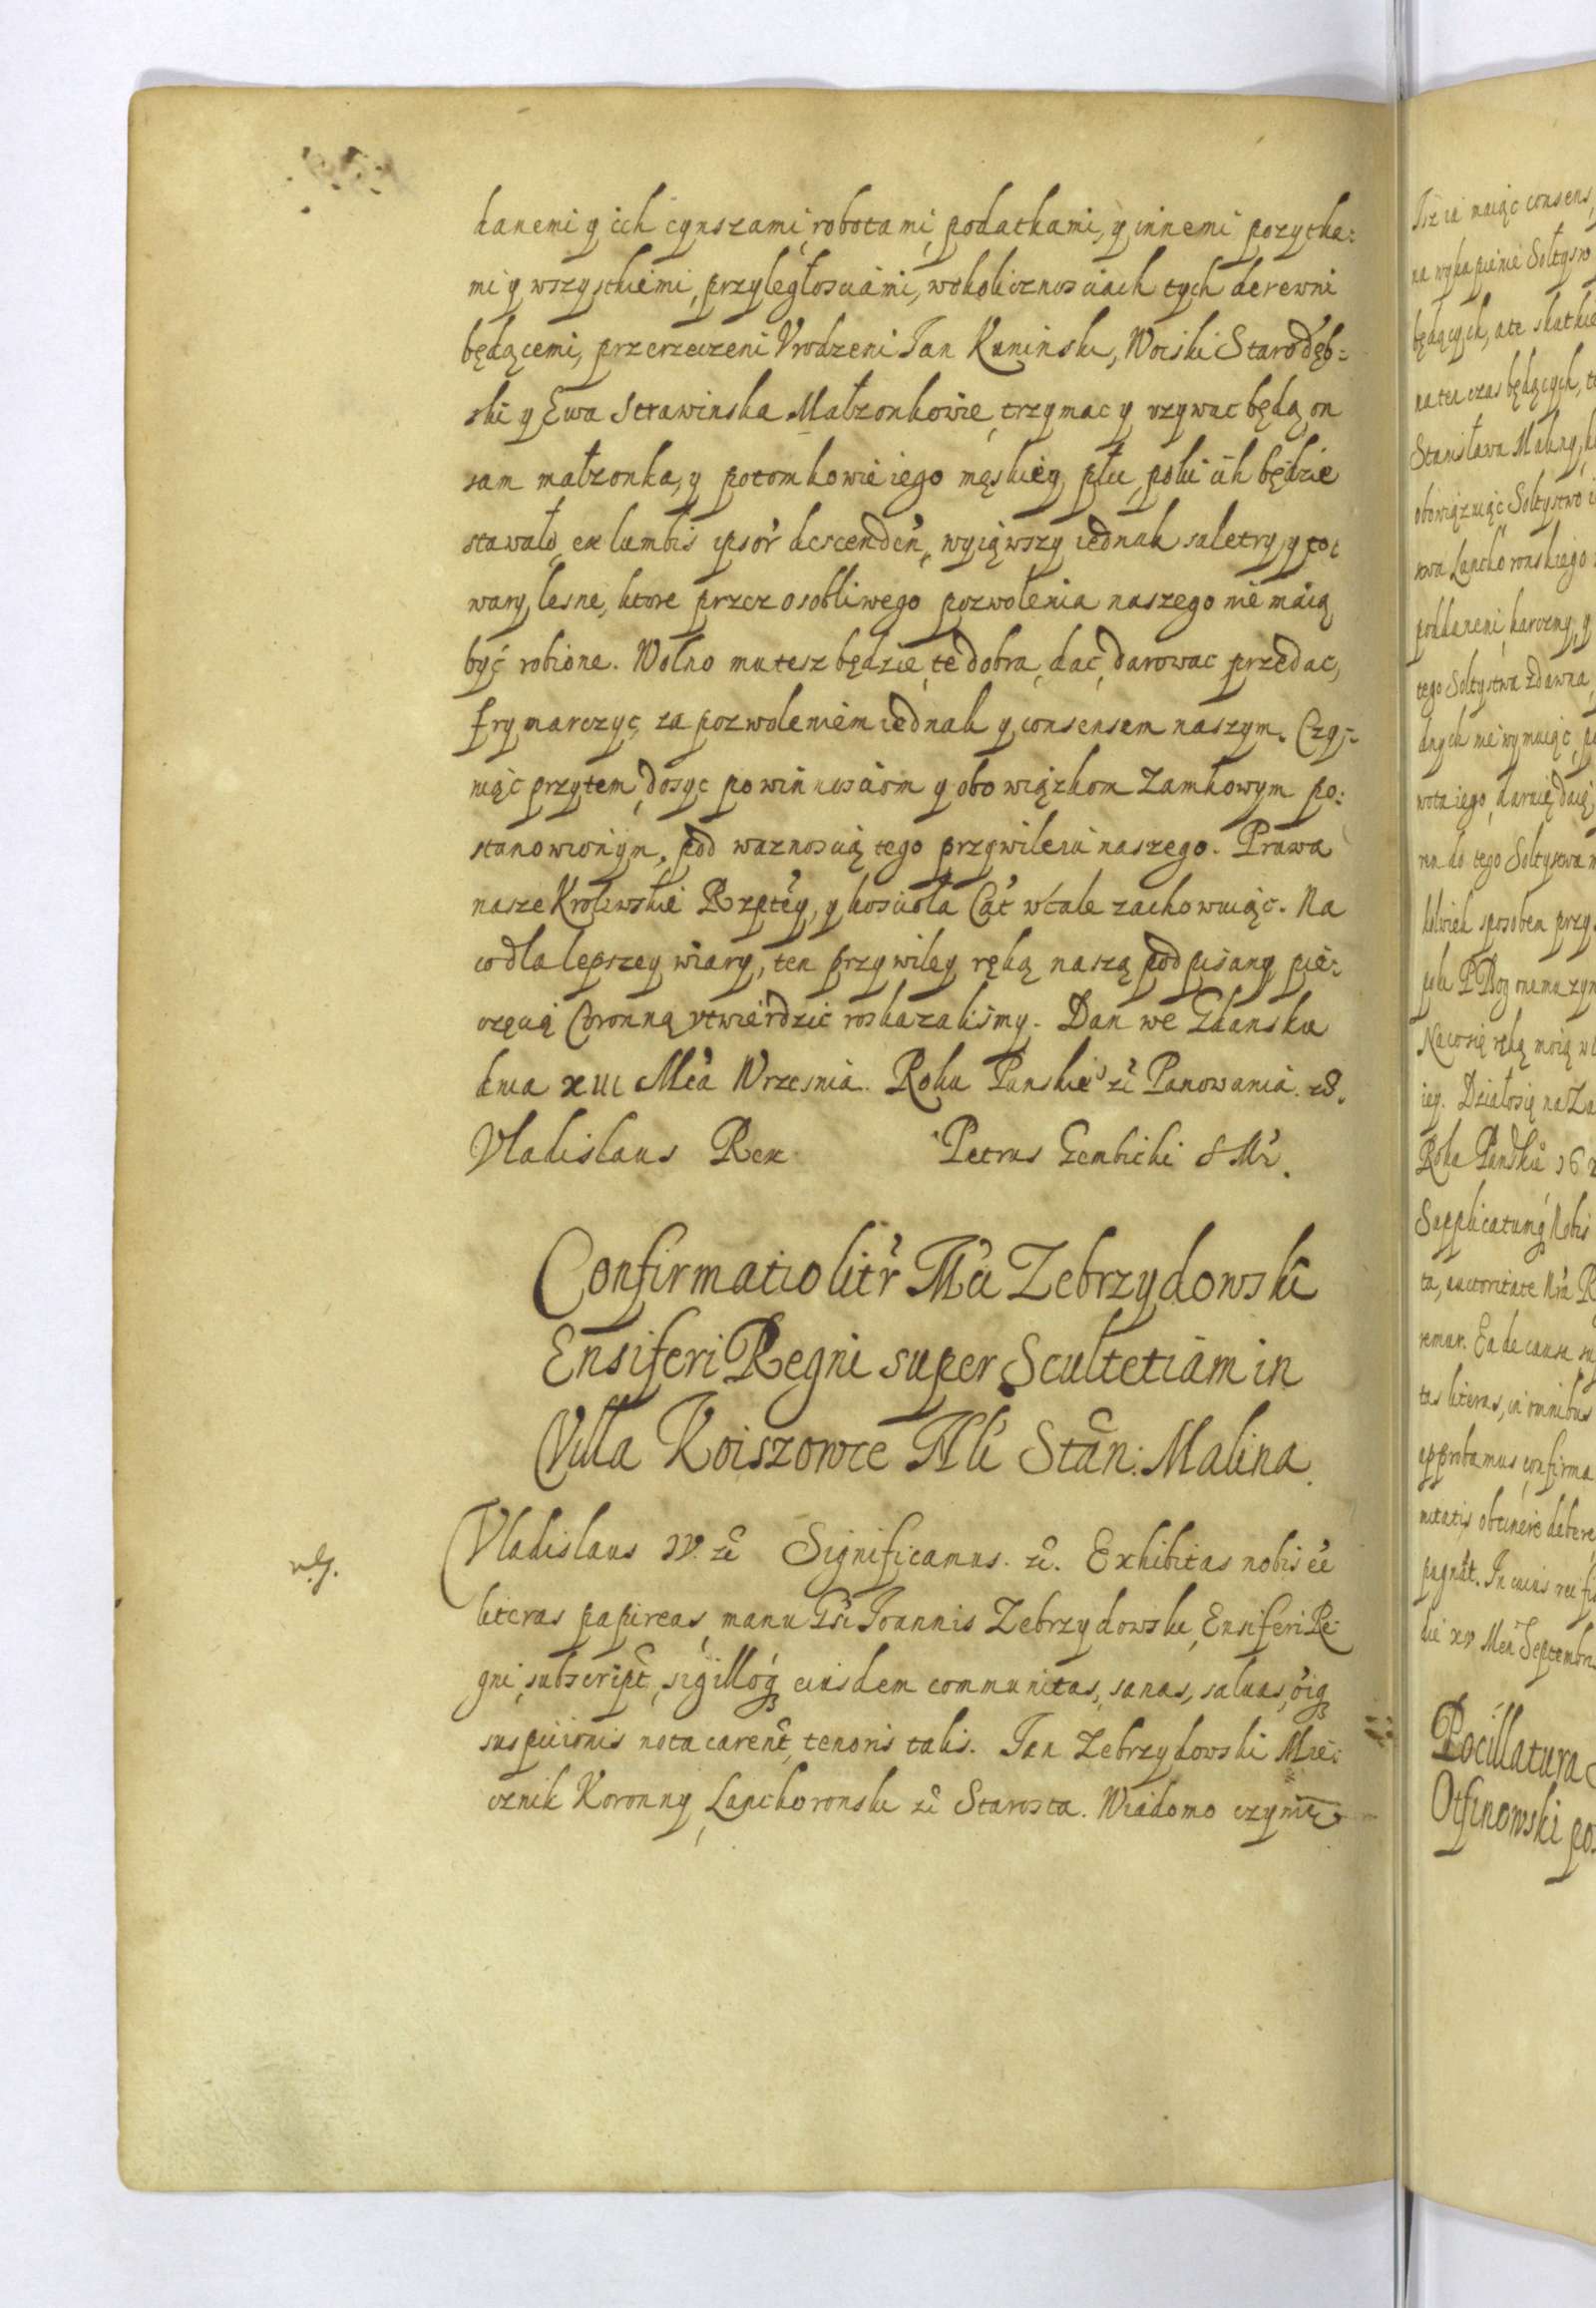 danemi y ich cynszami, robotami, podatkami, y innemi pozytka:
mi y wszystkiemi, przyległosciami, wokolicznosciach tych derewni
będącemi, przerzeczeni Vrodzeni Jan Kuninski, Woiski Starodęb=
ski y Ewa Strawinska Małzonkowie, trzymac y vzywac będą on
sam małzonka, y potomkowie iego męskiey płci, poki ich będzie
stawało, ex lumbis ipsor̃ descendeñ, wyiąwszy iednak saletry, y to:
wary, lesne, ktore przez osobliwego pozwolenia naszego nie maią
być robione. Wolno mu tesz będzie, te dobra, dać, darowac przedac,
frymarczyc, za pozwoleniem iednak y consensem naszym. Czy=
niąc przytem, dosyc powinnosciom y obowiązkom Zamkowym po:
stanowionym, pod waznoscią tego przywileiu naszego. Prawa
nasze Krolewskie Rzptey, y koscioła Cat̃ wcale zachowuiąc. Na
co dla lepszey wiary, ten przywiley ręką naszą podpisany pie:
częcią Coronną vtwierdzic roskazalismy. Dan we Gdansku
dnia XIII Mca Wrzesnia. Roku Panskie° zc̃ Panowania. z8.
Vladislaus Rex Petrus Gembicki S M̃.
Confirmatio litr̃ Mci Zebrzydowski
Ensiferi Regni super Scultetiam in
Villa Koiszowce Nli Stan: Malina.
Vladislaus IV. zc̃ Significamus. zc̃. Exhibitas nobis eẽ
literas papireas, manu Gsi Joannis Zebrzydowski, Ensiferi Re:
gni, subscript̃, sigilloq3 eiusdem communitas, sanas, saluas, oiq3
suspicionis nota carent̃, tenoris talis. Jan Zebrzydowski Mie:
cznik Koronny, Lanckoronski zc̃ Starosta. Wiadomo czynię
Isz ia maiąc consens
na wykupienie Sołtysw
będących, ate skutkie
na ten czas będących, t
Stanisława Maliny,
obowiązuiąc Sołtystwo i
stwa Lanckoronskiego
poddanemi karczmy, y
tego Sołtystwa zdawna
dnych nie wymuiąc, p
wota iego,
ren do tego Sołtystwa
kolwiek sposobem przy
Na co się ręką moią
iey. Działo się na Za
Roku Panskie 16
Supplicatumq3 Nobis
ta, auctoritate Nrã R
remur. Ea de causa su
tas literas, in omnibus
approbamus, confirma
mitatis obtinere debere
pugnãt. In cuius rei fi
die XV. Men Septembris
Pocillatura
Otfinowski po